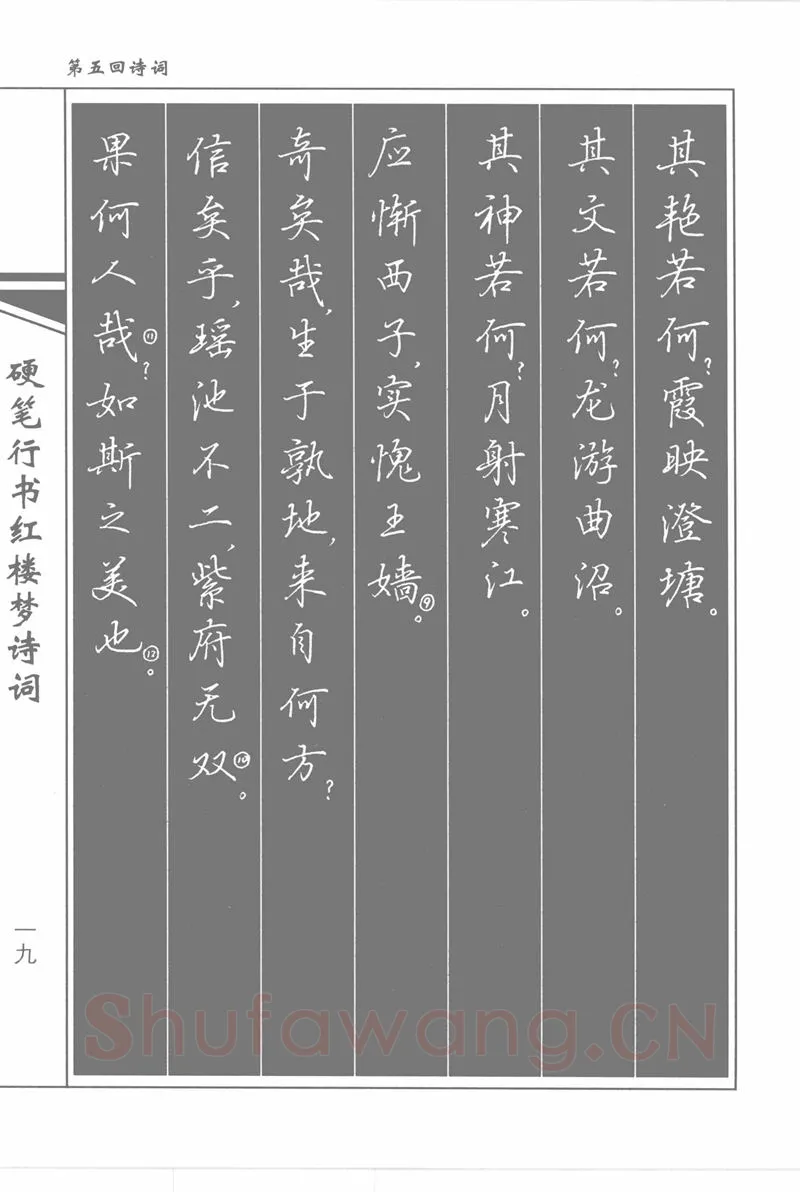 第五回诗词
其艳若何？霞映澄塘。
其文若何？龙游曲沼。
其神若何？月射寒江。
应惭西子，实愧王嫱⑨。
奇矣哉，生于孰地，来自何方？
信矣乎，瑶池不二，紫府无双⑩。
果何人哉⑪？如斯之美也⑫。
硬笔行书红楼梦诗词
一九
Shufawang.CN